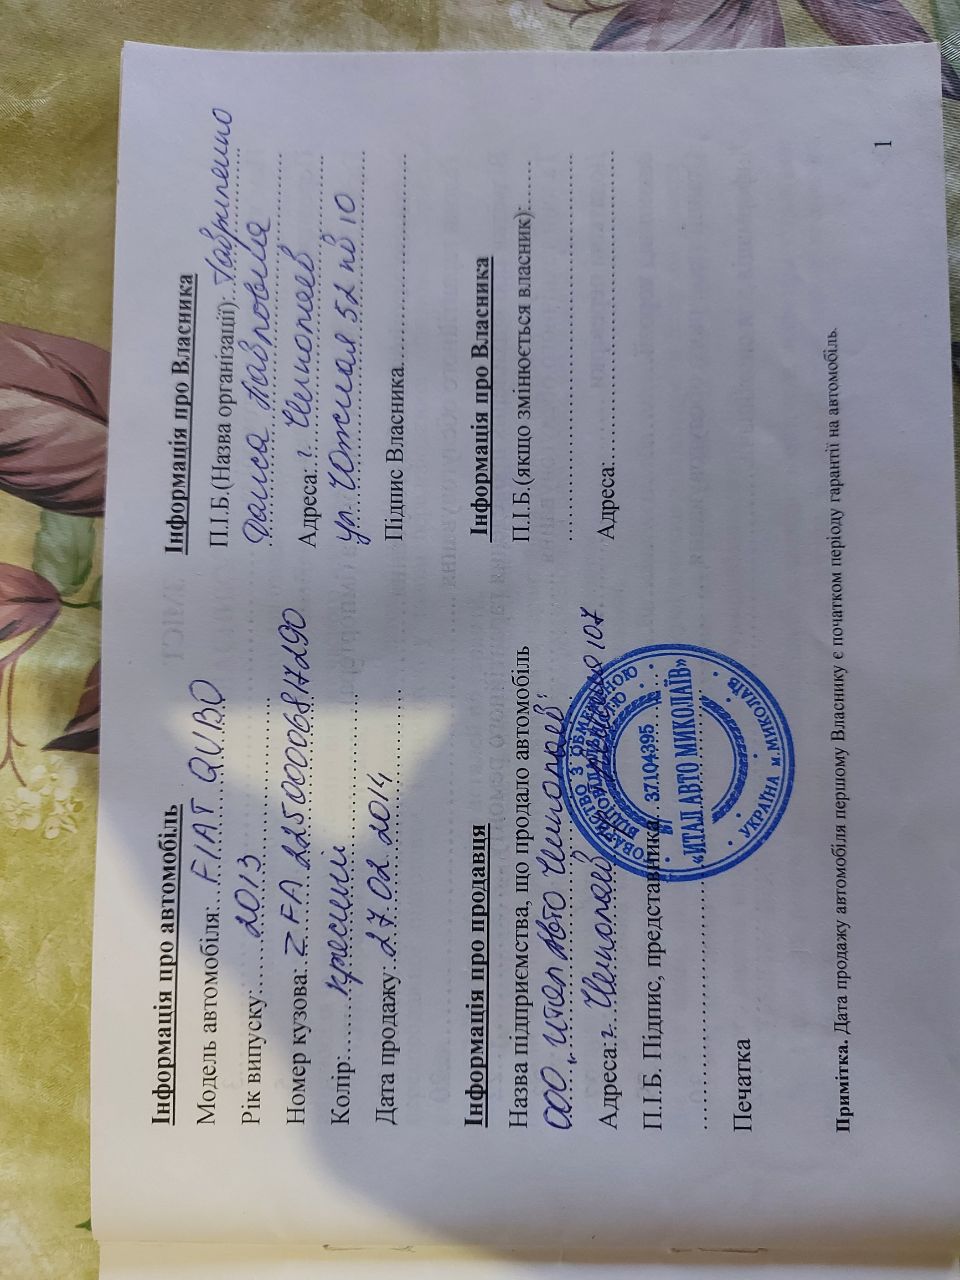 Інформація про автомобіль
Модель автомобіля: FIAT QUBO
Рік випуску: 2013
Номер кузова: ZFA22500006817290
Колір: красный
Дата продажу: 27.02.2014
Інформація про продавця
Назва підприємства, що продало автомобіль
ООО "Итал Авто Николаев"
Адреса: г. Николаев 107
П.І.Б. Підпис, представника
Печатка
Інформація про Власника
П.І.Б.(Назва організації): Гавриленко
Раиса Павловна
Адреса: г. Николаев
ул. Южная 52 кв 10
Підпис Власника
Інформація про Власника
П.І.Б.(якщо змінюється власник):
Адреса:
ТОВАРИСТВО З ОБМЕЖЕНОЮ
ВІДПОВІДАЛЬНІСТЮ
37104395
«ИТАЛ АВТО МИКОЛАЇВ»
УКРАЇНА м.МИКОЛАЇВ
Примітка. Дата продажу автомобіля першому Власнику є початком періоду гарантії на автомобіль.
1